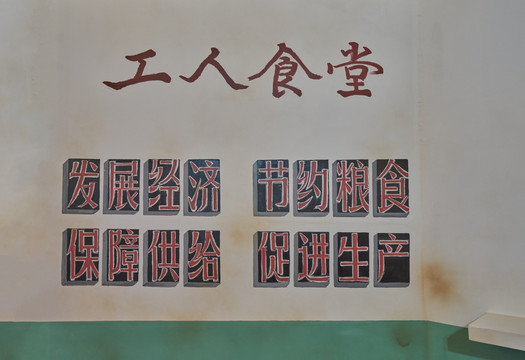 工人食堂
发展经济 节约粮食
保障供给 促进生产